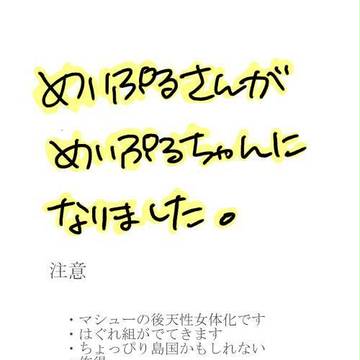 めいぷるさんが
めいぷるちゃんに
なりました。
注意
・マシューの後天性女体化です
・はぐれ組がでてきます
・ちょっぴり島国かもしれない